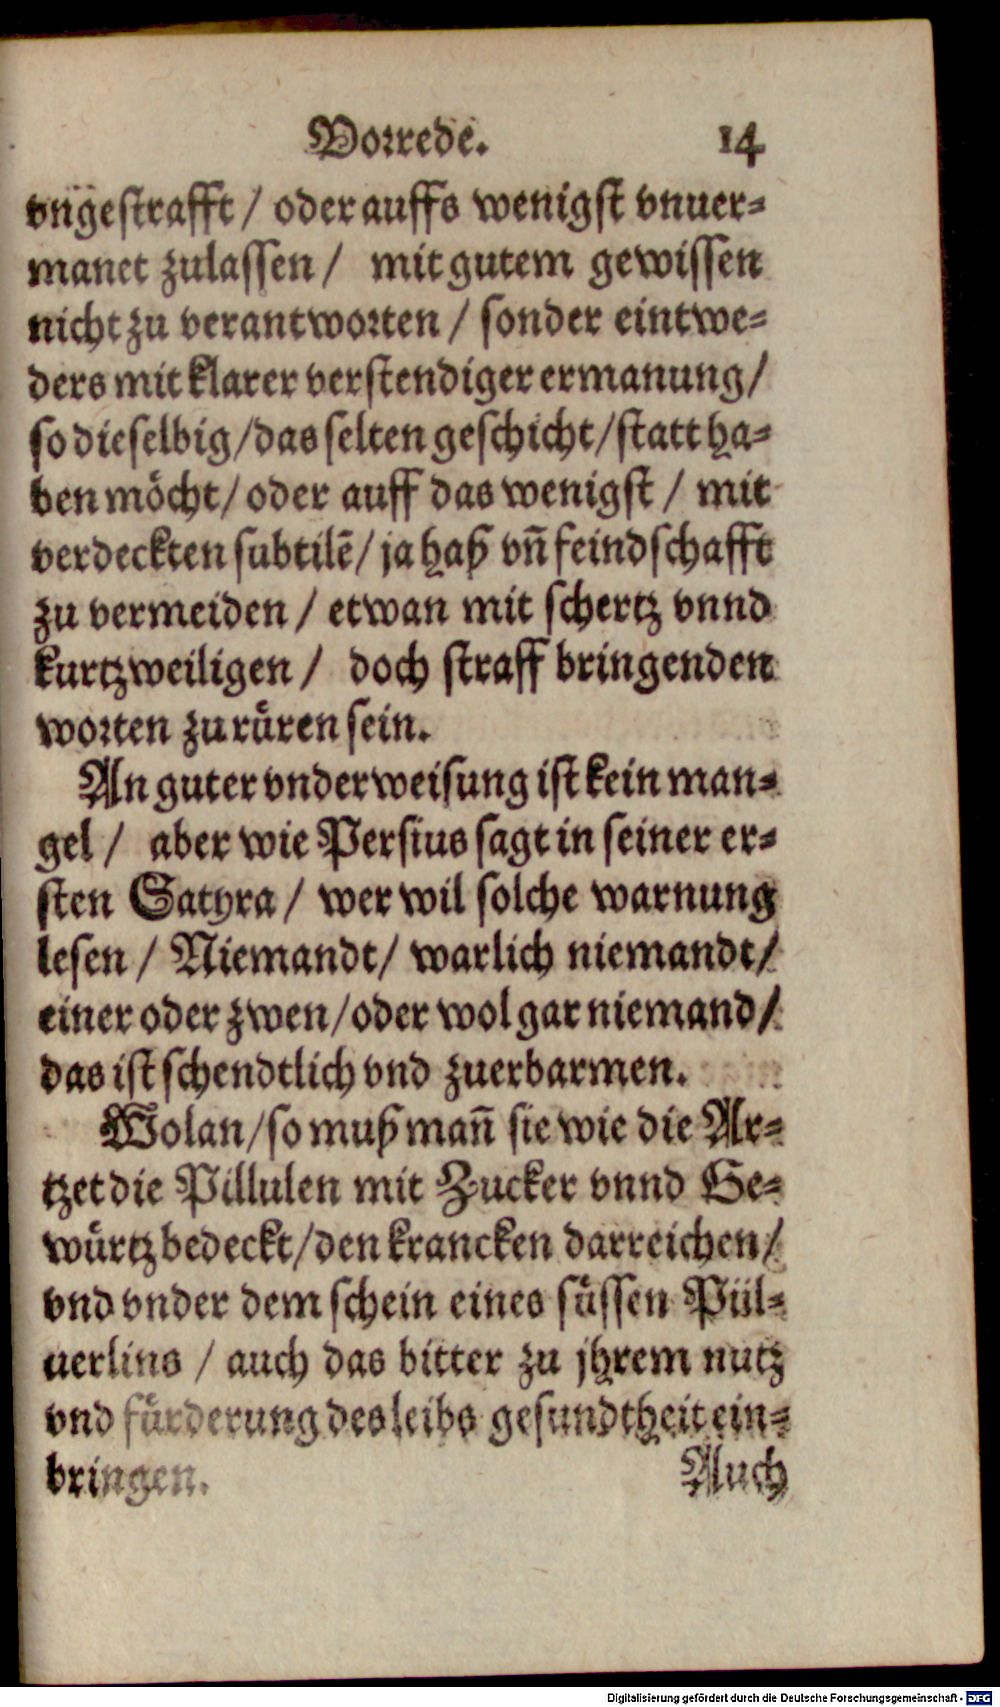 Vorrede. 14
vngestrafft / oder auffs wenigst vnuer⸗
manet zulassen / mit gutem gewissen
nicht zu verantworten / sonder eintwe⸗
ders mit klarer verstendiger ermanung /
so dieselbig / das selten geschicht / statt ha⸗
ben möcht / oder auff das wenigst / mit
verdeckten subtilẽ / ja haß vñ feindschafft
zu vermeiden / etwan mit schertz vnnd
kurtzweiligen / doch straff bringenden
worten zu rüren sein.
An guter vnderweisung ist kein man⸗
gel / aber wie Persius sagt in seiner er⸗
sten Satyra / wer wil solche warnung
lesen / Niemandt / warlich niemandt /
einer oder zwen / oder wol gar niemand /
das ist schendtlich vnd zuerbarmen.
Wolan / so muß mañ sie wie die Ar⸗
tzet die Pillulen mit Zucker vnnd Ge⸗
würtz bedeckt / den krancken darreichen /
vnd vnder dem schein eines süssen Pül⸗
uerlins / auch das bitter zu jhrem nutz
vnd fürderung des leibs gesundtheit ein⸗
bringen. Auch
Digitalisierung gefördert durch die Deutsche Forschungsgemeinschaft - DFG